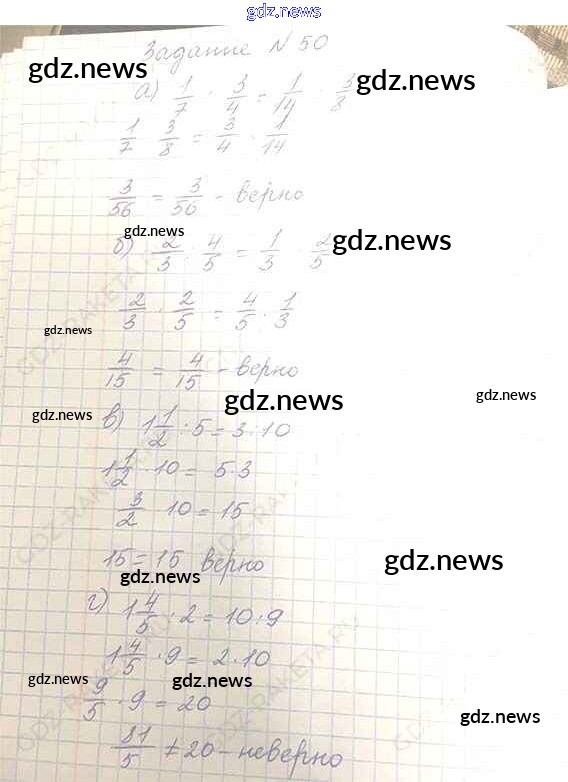 gdz.news
Задание №50
gdz.news
gdz.news
а) 1/7 : 3/4 = 1/14 : 3/8
1/7 · 3/8 = 3/4 · 1/14
gdz.news
3/56 = 3/56 - верно
gdz.news
gdz.news
б) 2/3 : 4/5 = 1/3 : 2/5
2/3 · 2/5 = 4/5 · 1/3
gdz.news
4/15 = 4/15 - верно
gdz.news
gdz.news
gdz.news
в) 1 1/2 : 5 = 3 : 10
1 1/2 · 10 = 5·3
3/2 10 = 15
15 = 15 верно
gdz.news
gdz.news
г) 1 4/5 : 2 = 10 : 9
1 4/5 · 9 = 2·10
gdz.news
gdz.news
9/5 · 9 = 20
gdz.news
81/5 ≠ 20 - неверно
GDZ-RAKETA.RU